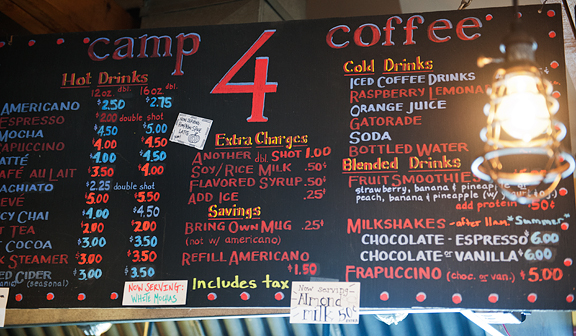 camp 4 coffee
Hot Drinks
12 oz dbl. 16 oz dbl.
AMERICANO $2.50 $2.75
ESPRESSO $2.00 double shot
MOCHA $4.50 $5.00
APPUCCINO $4.00 $4.50
LATTÉ $4.00 $4.50
AFÉ AU LAIT $3.50 $4.00
ACHIATO $2.25 double shot
EVÉ $5.00 $5.50
CY CHAI $4.00 $4.50
T TEA $2.00 $2.00
COCOA $3.00 $3.50
K STEAMER $3.00 $3.50
ED CIDER $3.00 $3.50
(seasonal)
NOW SERVING:
WHITE MOCHAS
Extra Charges
ANOTHER dbl SHOT 1.00
SOY/RICE MILK .50¢
FLAVORED SYRUP .50¢
ADD ICE .25¢
Savings
BRING OWN MUG .25¢
(not w/ americano)
REFILL AMERICANO
$1.50
Includes tax
Now serving
Almond
milk 50¢
Cold Drinks
ICED COFFEE DRINKS
RASPBERRY LEMONA
ORANGE JUICE
GATORADE
SODA
BOTTLED WATER
Blended Drinks
FRUIT SMOOTHIE
strawberry, banana & pineapple
peach, banana & pineapple (w/
add protein .50¢
MILKSHAKES - after 11am *Summer*
CHOCOLATE - ESPRESSO $6.00
CHOCOLATE or VANILLA $6.00
FRAPUCCINO (choc. or van.) $5.00